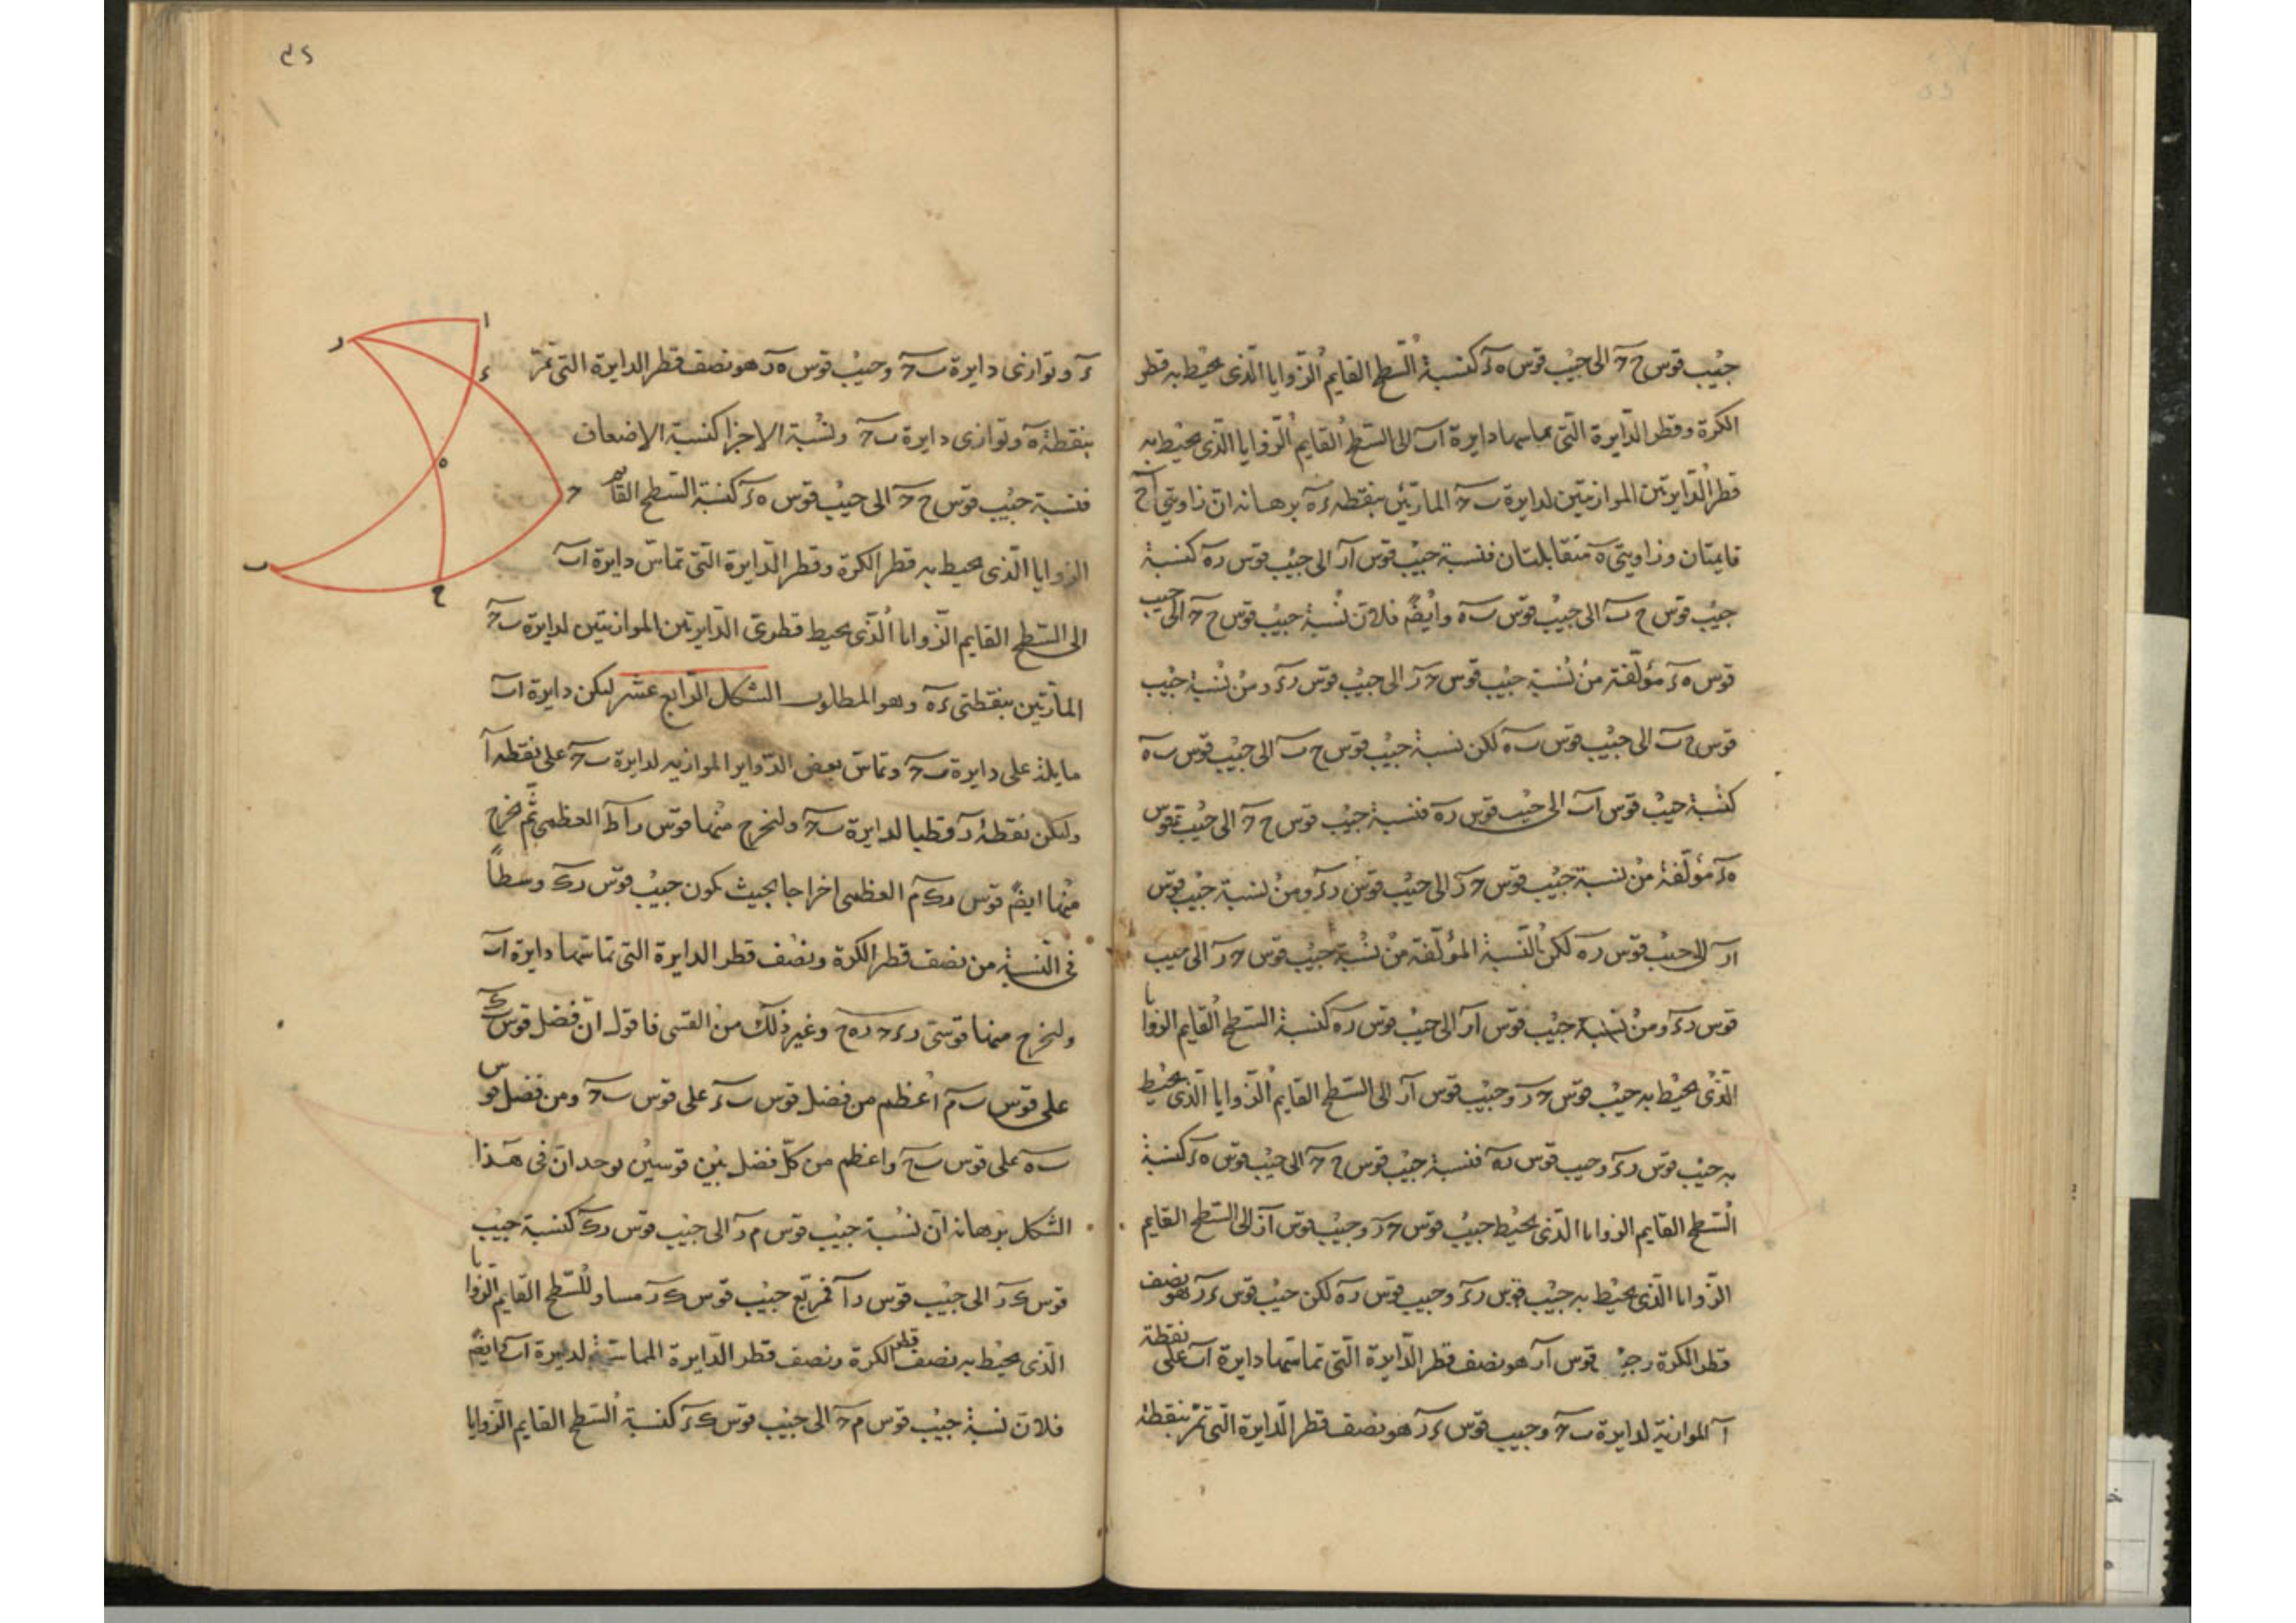 جيب قوس ح حَ الى جيب قوس ه ءَ كنسبة السطح القايم الزوايا الذى يحيط به قطر
الكرة وقطر الدايرة التى تماسها دايرة اب الى السطح القايم الزوايا الذى يحيط به
قطر الدايرتين الموازيتين لدايرة ب حَ المارتين بنقطه ءَ هَ برهانه ان زاويتى ا ح
قايمتان وزاويتى هَ متقابلتان فنسبة جيب قوس ار الى جيب قوس ره كنسبة
جيب قوس ح ب الى جيب قوس ب ه وايضً فلان نسبة جيب قوس ح حَ الى جيب
قوس ه ءَ مؤلفة من نسبة جيب قوس حَ ر الى جيب قوس ر ءَ ومن نسبة جيب
قوس ح ب الى جيب قوس ب ه لكن نسبة جيب قوس ح ب الى جيب قوس ب ه
كنسبة جيب قوس ا الى جيب قوس ره فنسبة جيب قوس ح حَ الى جيب قوس
ه ءَ مؤلفة من نسبة جيب قوس حَ ر الى جيب قوس ر ءَ ومن نسبة جيب قوس
ار الى جيب قوس ره لكن النسبة المؤلفة من نسبة جيب قوس حَ ر الى جيب
قوس ر ءَ ومن نسبة جيب قوس ار الى جيب قوس ره كنسبة السطح القايم الزوايا
الذى يحيط به جيب قوس حَ ر وجيب قوس ار الى السطح القايم الزوايا الذى يحيط
به جيب قوس ر ءَ وجيب قوس ره فنسبة جيب قوس ح حَ الى جيب قوس ه ءَ كنسبة
السطح القايم الزوايا الذى يحيط جيب قوس حَ ر وجيب قوس ار الى السطح القايم
الزوايا الذى يحيط به جيب قوس ر ءَ وجيب قوس ره لكن جيب قوس ءَ ر هو نصف
قطر الكرة وجيب قوس ار هو نصف قطر الدايرة التى تماسها دايرة اب على نقطة
آ الموازية لدايرة ب حَ وجيب قوس ءَ ر هو نصف قطر الدايرة التى تمر بنقطة
ءَ وتوازى دايرة ب حَ وجيب قوس ه ر هو نصف قطر الدايرة التى تمر
بنقطة ه وتوازى دايرة ب حَ ونسبة الاجزا كنسبة الاضعاف
فنسبة جيب قوس ح حَ الى جيب قوس ه ءَ كنسبة السطح القايم
الزوايا الذى يحيط به قطر الكرة وقطر الدايرة التى تماس دايرة اب
الى السطح القايم الزوايا الذى يحيط قطرى الدايرتين الموازيتين لدايرة ب حَ
المارتين بنقطتى ءَ ه وهو المطلوب الشكل الرابع عشر ليكن دايرة اب
مايلة على دايرة ب حَ وتماس بعض الدواير الموازيه لدايرة ب حَ على نقطه آ
وليكن نقطة ر قطبا لدايرة ب حَ ولنخرج منها قوس راط العظمى ثم نخرج
منها ايضً قوس رك م العظمى اخراجا بحيث يكون جيب قوس رك وسطاً
فى النسبة من نصف قطر الكرة ونصف قطر الدايرة التى تماسها دايرة اب
ولنخرج منها قوسى ر ءَ حَ ره ح وغير ذلك من القسى فاقول ان فضل قوس ب ك
على قوس ب م اعظم من فضل قوس ب ءَ على قوس ب حَ ومن فضل قوس
ب ه على قوس ب ح واعظم من كل فضل بين قوسين يوجدان فى هذا
الشكل برهانه ان نسبة جيب قوس م ر الى جيب قوس رك كنسبة جيب
قوس ك ر الى جيب قوس را فمربع جيب قوس ك ر مساو للسطح القايم الزوايا
الذى يحيط به نصف قطر الكرة ونصف قطر الدايرة المماسة لدايرة اب وايضً
فلان نسبة جيب قوس م حَ الى جيب قوس ك ءَ كنسبة السطح القايم الزوايا
ا
ر
ء
ه
حَ
ب
ح